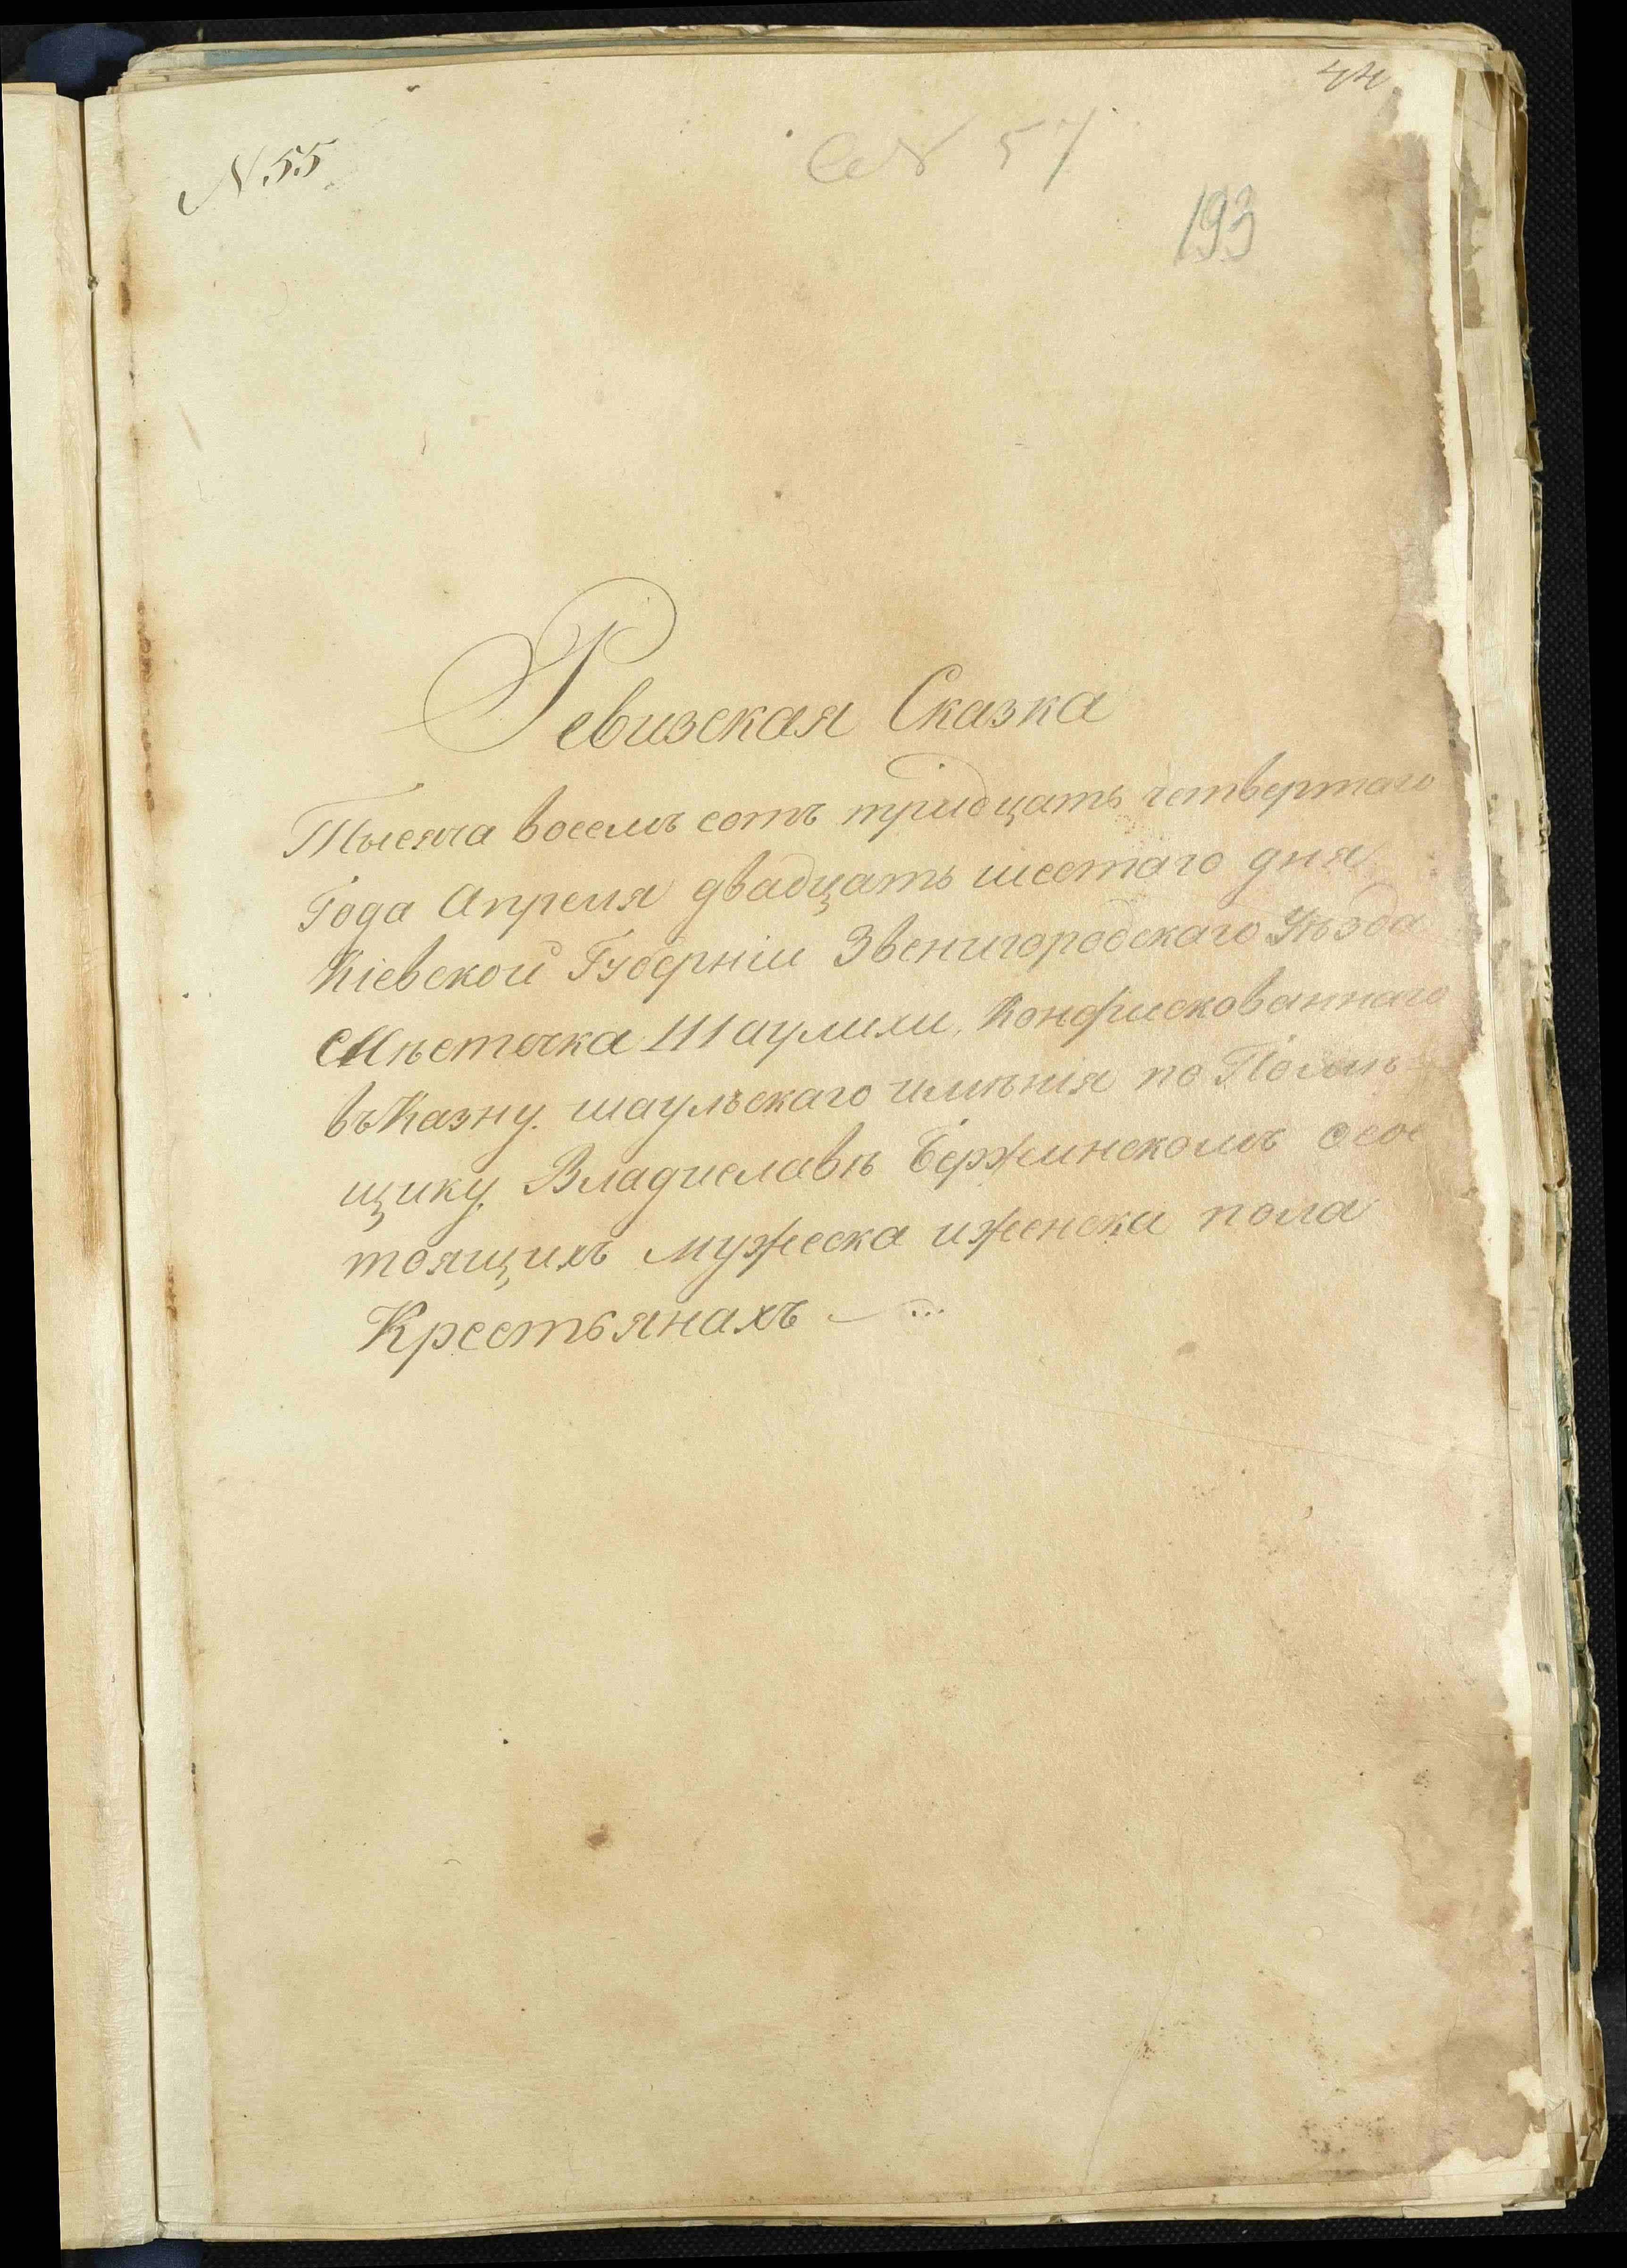 44
N 55
57
193
Ревизская Сказка
Тысяча восемъ сотъ тридцать четвертаго
Года Апреля двадцать шестаго дня
Кіевской Губерніи Звенигородскаго Уѣзда
Мѣстечка Шаулихи, Конфискованнаго
въ Казну. шаульскаго имѣнія по Помѣ
щику. Владиславѣ Бержинскомъ сос
тоящихъ мужеска и женска пола
Крестьянахъ